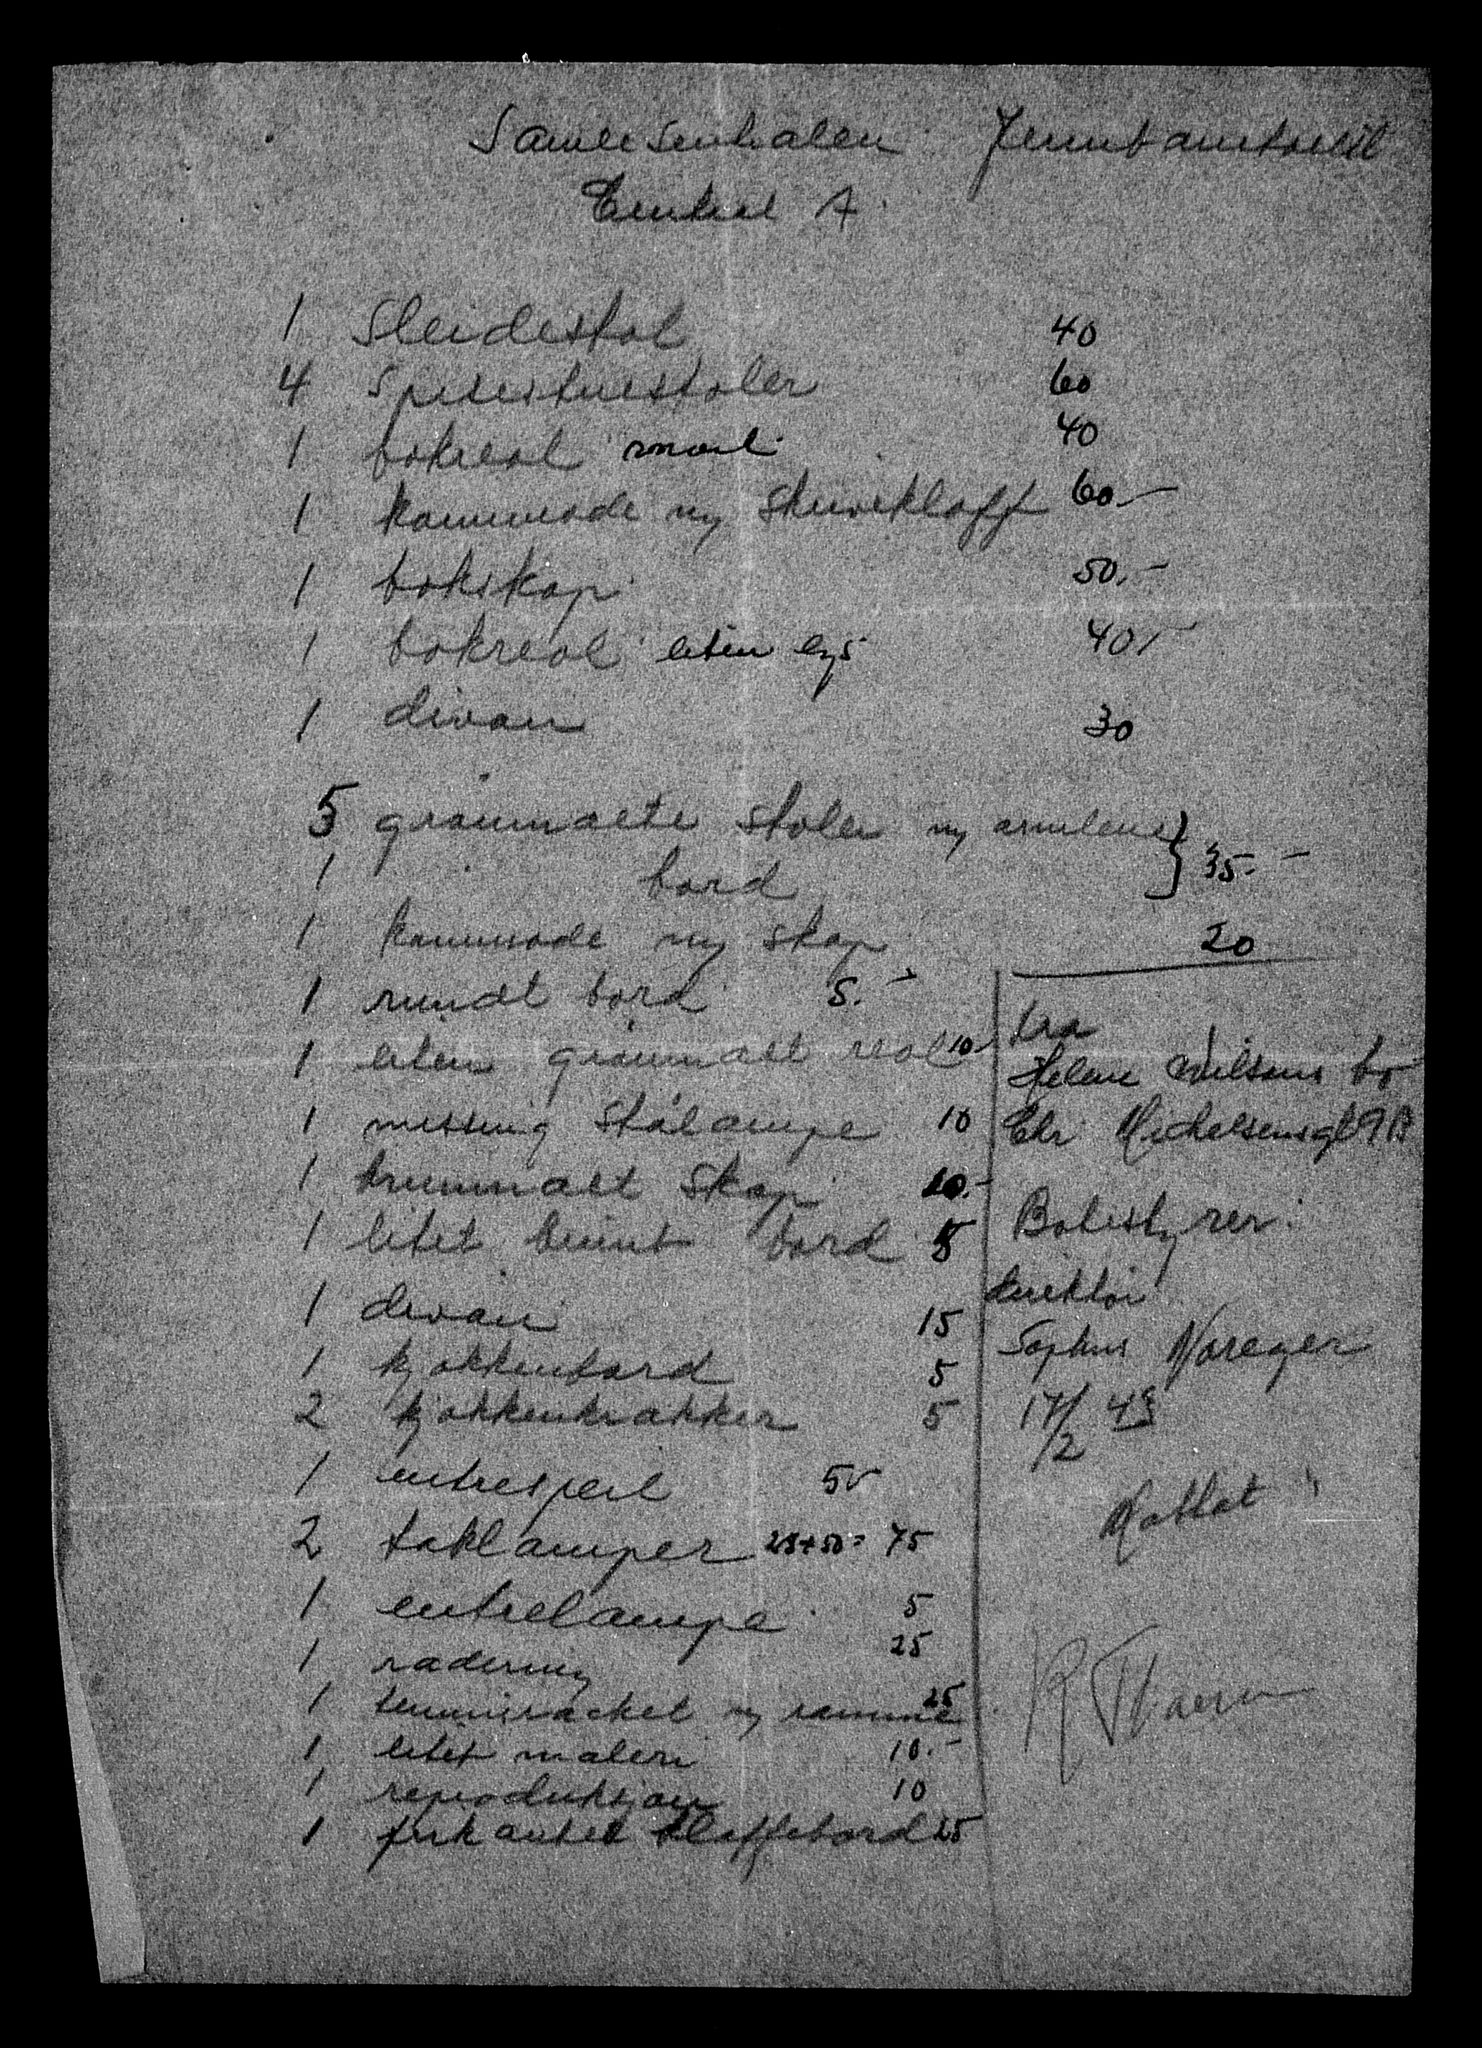 Samlesentralen Jernbanetollst
Enkel A.
1 Sleidestol 40
4 Spisestuestoler 60
1 bokreol smal 40
1 kommode m/ Skriveklaff 60.-
1 bokskap 50.-
1 bokreol liten lys 40.-
1 divan 30
5 gråmalte stoler m/ armlene } 35.-
1 bord
1 kommode m/ skap 20
1 rundt bord 5.-
1 liten gråmalt reol 10.-
1 messing Stålampe 10
1 brunmalt Skap 10.-
1 litet beint bord 5
1 divan 15
1 kjøkkenbord 5
2 kjøkkenkrakker 5
1 entrespeil 5.-
2 taklamper 25+50= 75
1 entrelampe 5
1 radering 25
1 tennisracket m/ ramme 25
1 litet maleri 10.-
1 reproduksjon 10
1 firkantet klaffebord 25
fra
Helene Nilsens bo
Chr Michelsensgt 9 B
Bobestyrer:
direktør
Sophus Noreger
17/2 43
Mottat